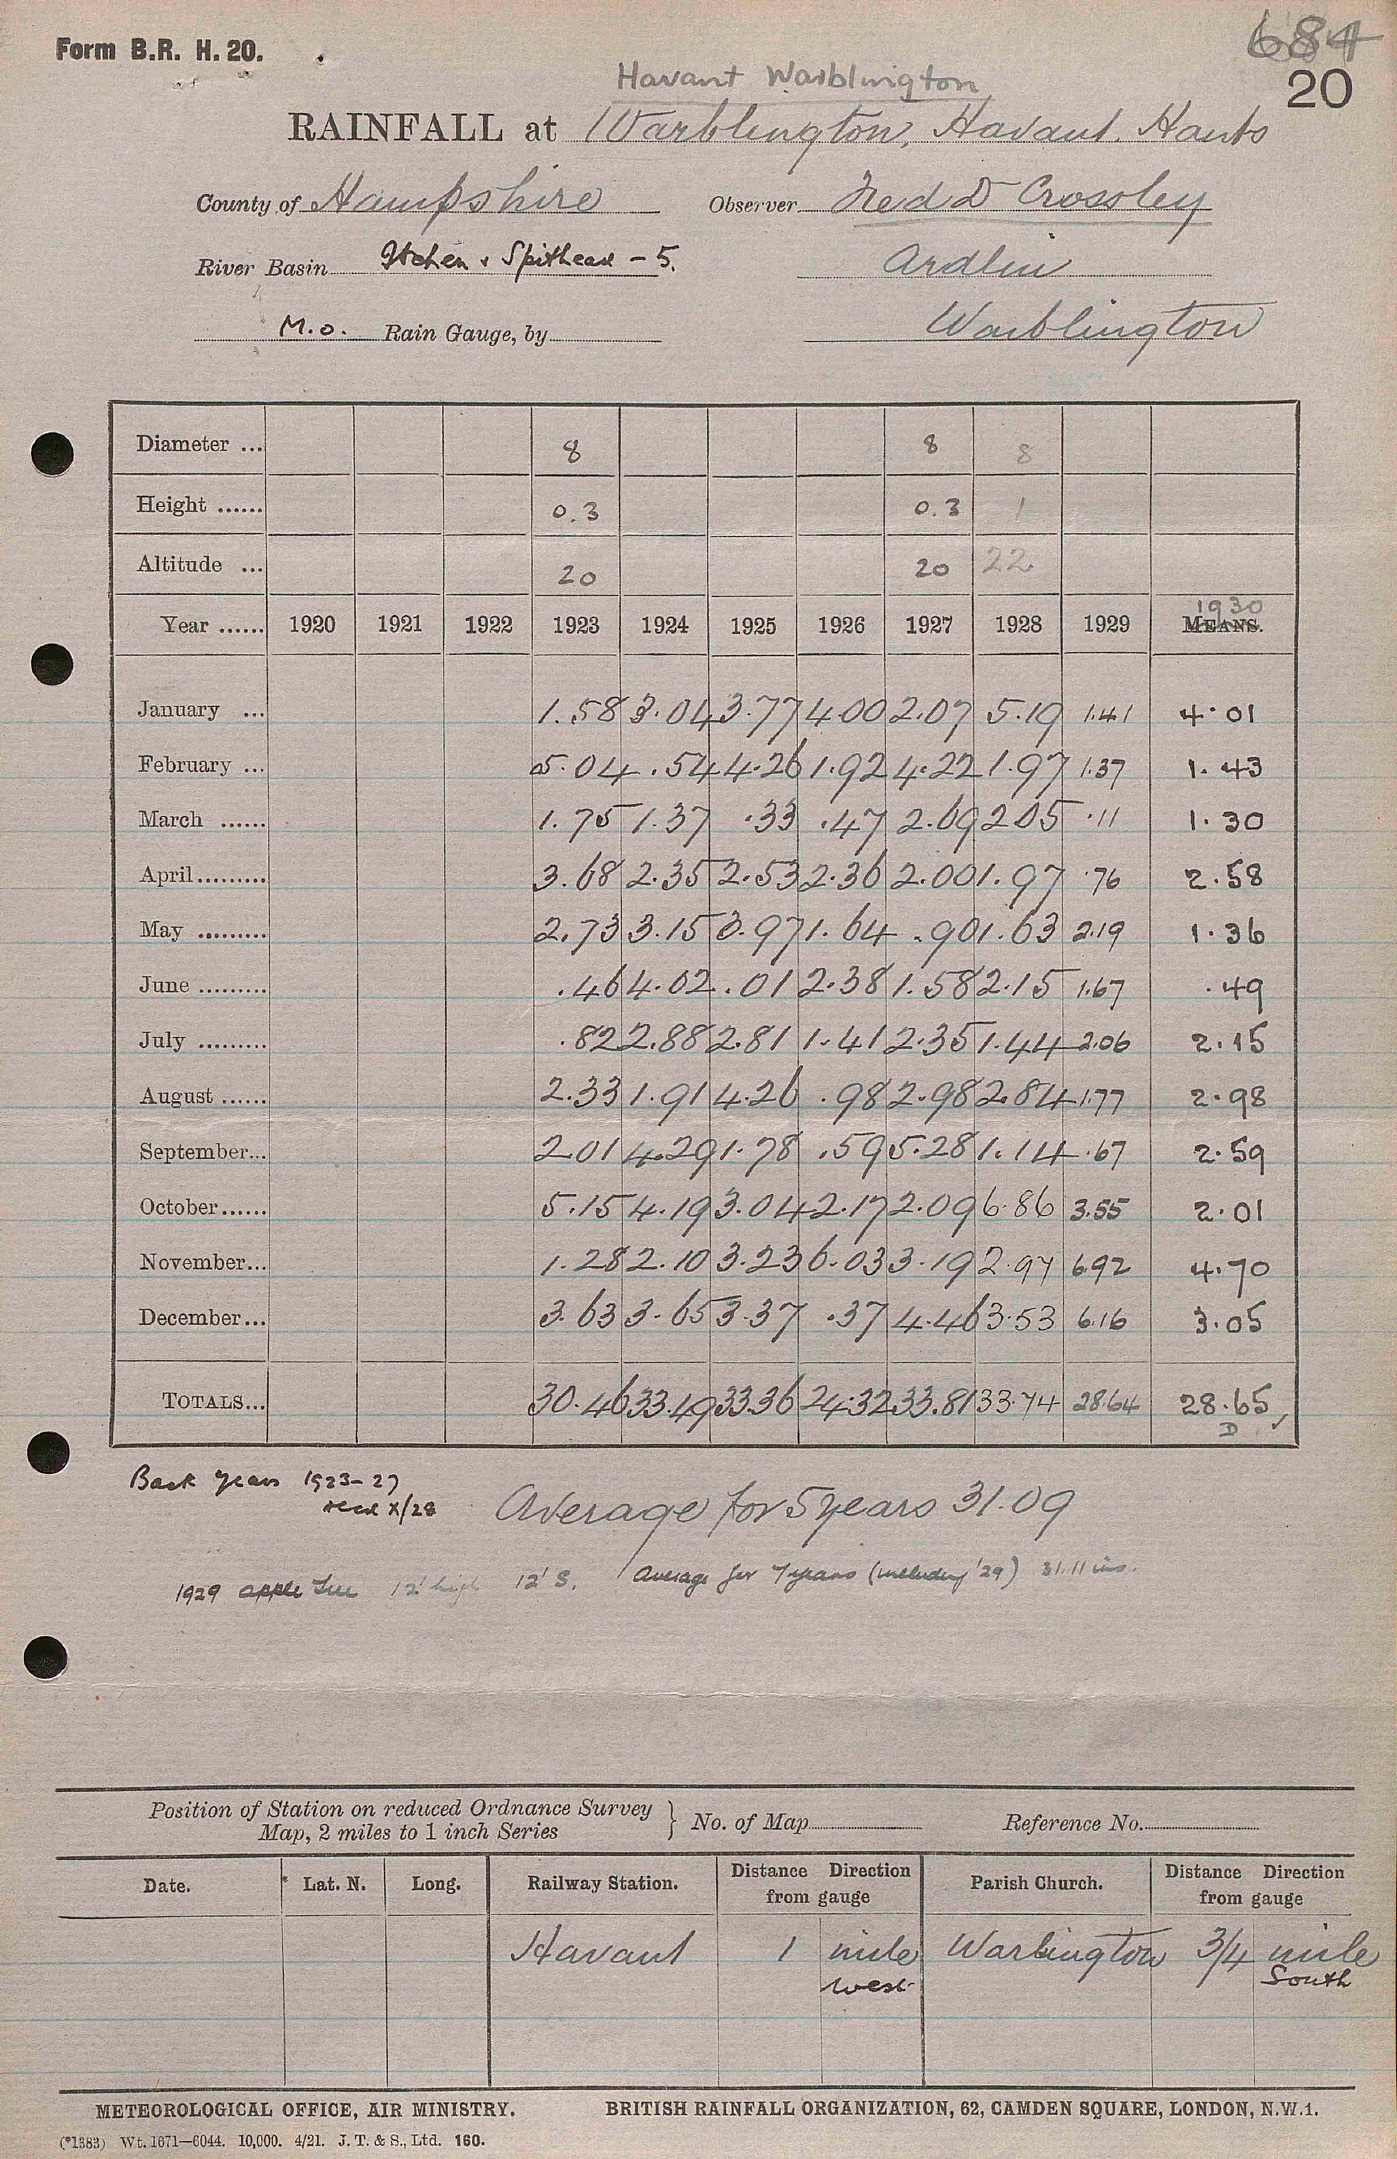 Form B.R. H. 20.
684
20
Havant Warblington
RAINFALL at Warblington, Havant. Hants
County of Hampshire Observer Fred D Crossley
River Basin Itchen & Spithead - 5. Ardlui
M.O. Rain Gauge, by Warblington
Diameter ... 8 8 8
Height ...... 0.3 0.3 1
Altitude ... 20 20 22
1930
Year ...... 1920 1921 1922 1923 1924 1925 1926 1927 1928 1929 MEANS.
January ... 1.58 3.04 3.77 4.00 2.07 5.19 1.41 4.01
February ... 5.04 .54 4.26 1.92 4.22 1.97 1.37 1.43
March ...... 1.75 1.37 .33 .47 2.69 2.05 .11 1.30
April ......... 3.68 2.35 2.53 2.36 2.00 1.97 .76 2.58
May ......... 2.73 3.15 3.97 1.64 .90 1.63 2.19 1.36
June ......... .46 4.02 .01 2.38 1.58 2.15 1.67 .49
July ......... .82 2.88 2.81 1.41 2.35 1.44 2.06 2.15
August ...... 2.33 1.91 4.26 .98 2.98 2.84 1.77 2.98
September... 2.01 4.29 1.78 .59 5.28 1.14 .67 2.59
October ...... 5.15 4.19 3.04 2.17 2.09 6.86 3.55 2.01
November... 1.28 2.10 3.23 6.03 3.19 2.97 6.92 4.70
December... 3.63 3.65 3.37 .37 4.46 3.53 6.16 3.05
TOTALS... 30.46 33.49 33.36 24.32 33.81 33.74 28.64 28.65
D ✓
Back years 1923-27
recd X/28
Average for 5 years 31.09
1929 apple tree 12' high 12' S. Average for 7 years (including '29) 31.11 ins.
Position of Station on reduced Ordnance Survey
Map, 2 miles to 1 inch Series } No. of Map Reference No.
Date. Lat. N. Long. Railway Station. Distance Direction from gauge Parish Church. Distance Direction from gauge
Havant 1 mile Warblington 3/4 mile
West South
METEOROLOGICAL OFFICE, AIR MINISTRY. BRITISH RAINFALL ORGANIZATION, 62, CAMDEN SQUARE, LONDON, N.W.1.
(*1383) Wt. 1671—6044. 10,000. 4/21. J. T. & S., Ltd. 160.